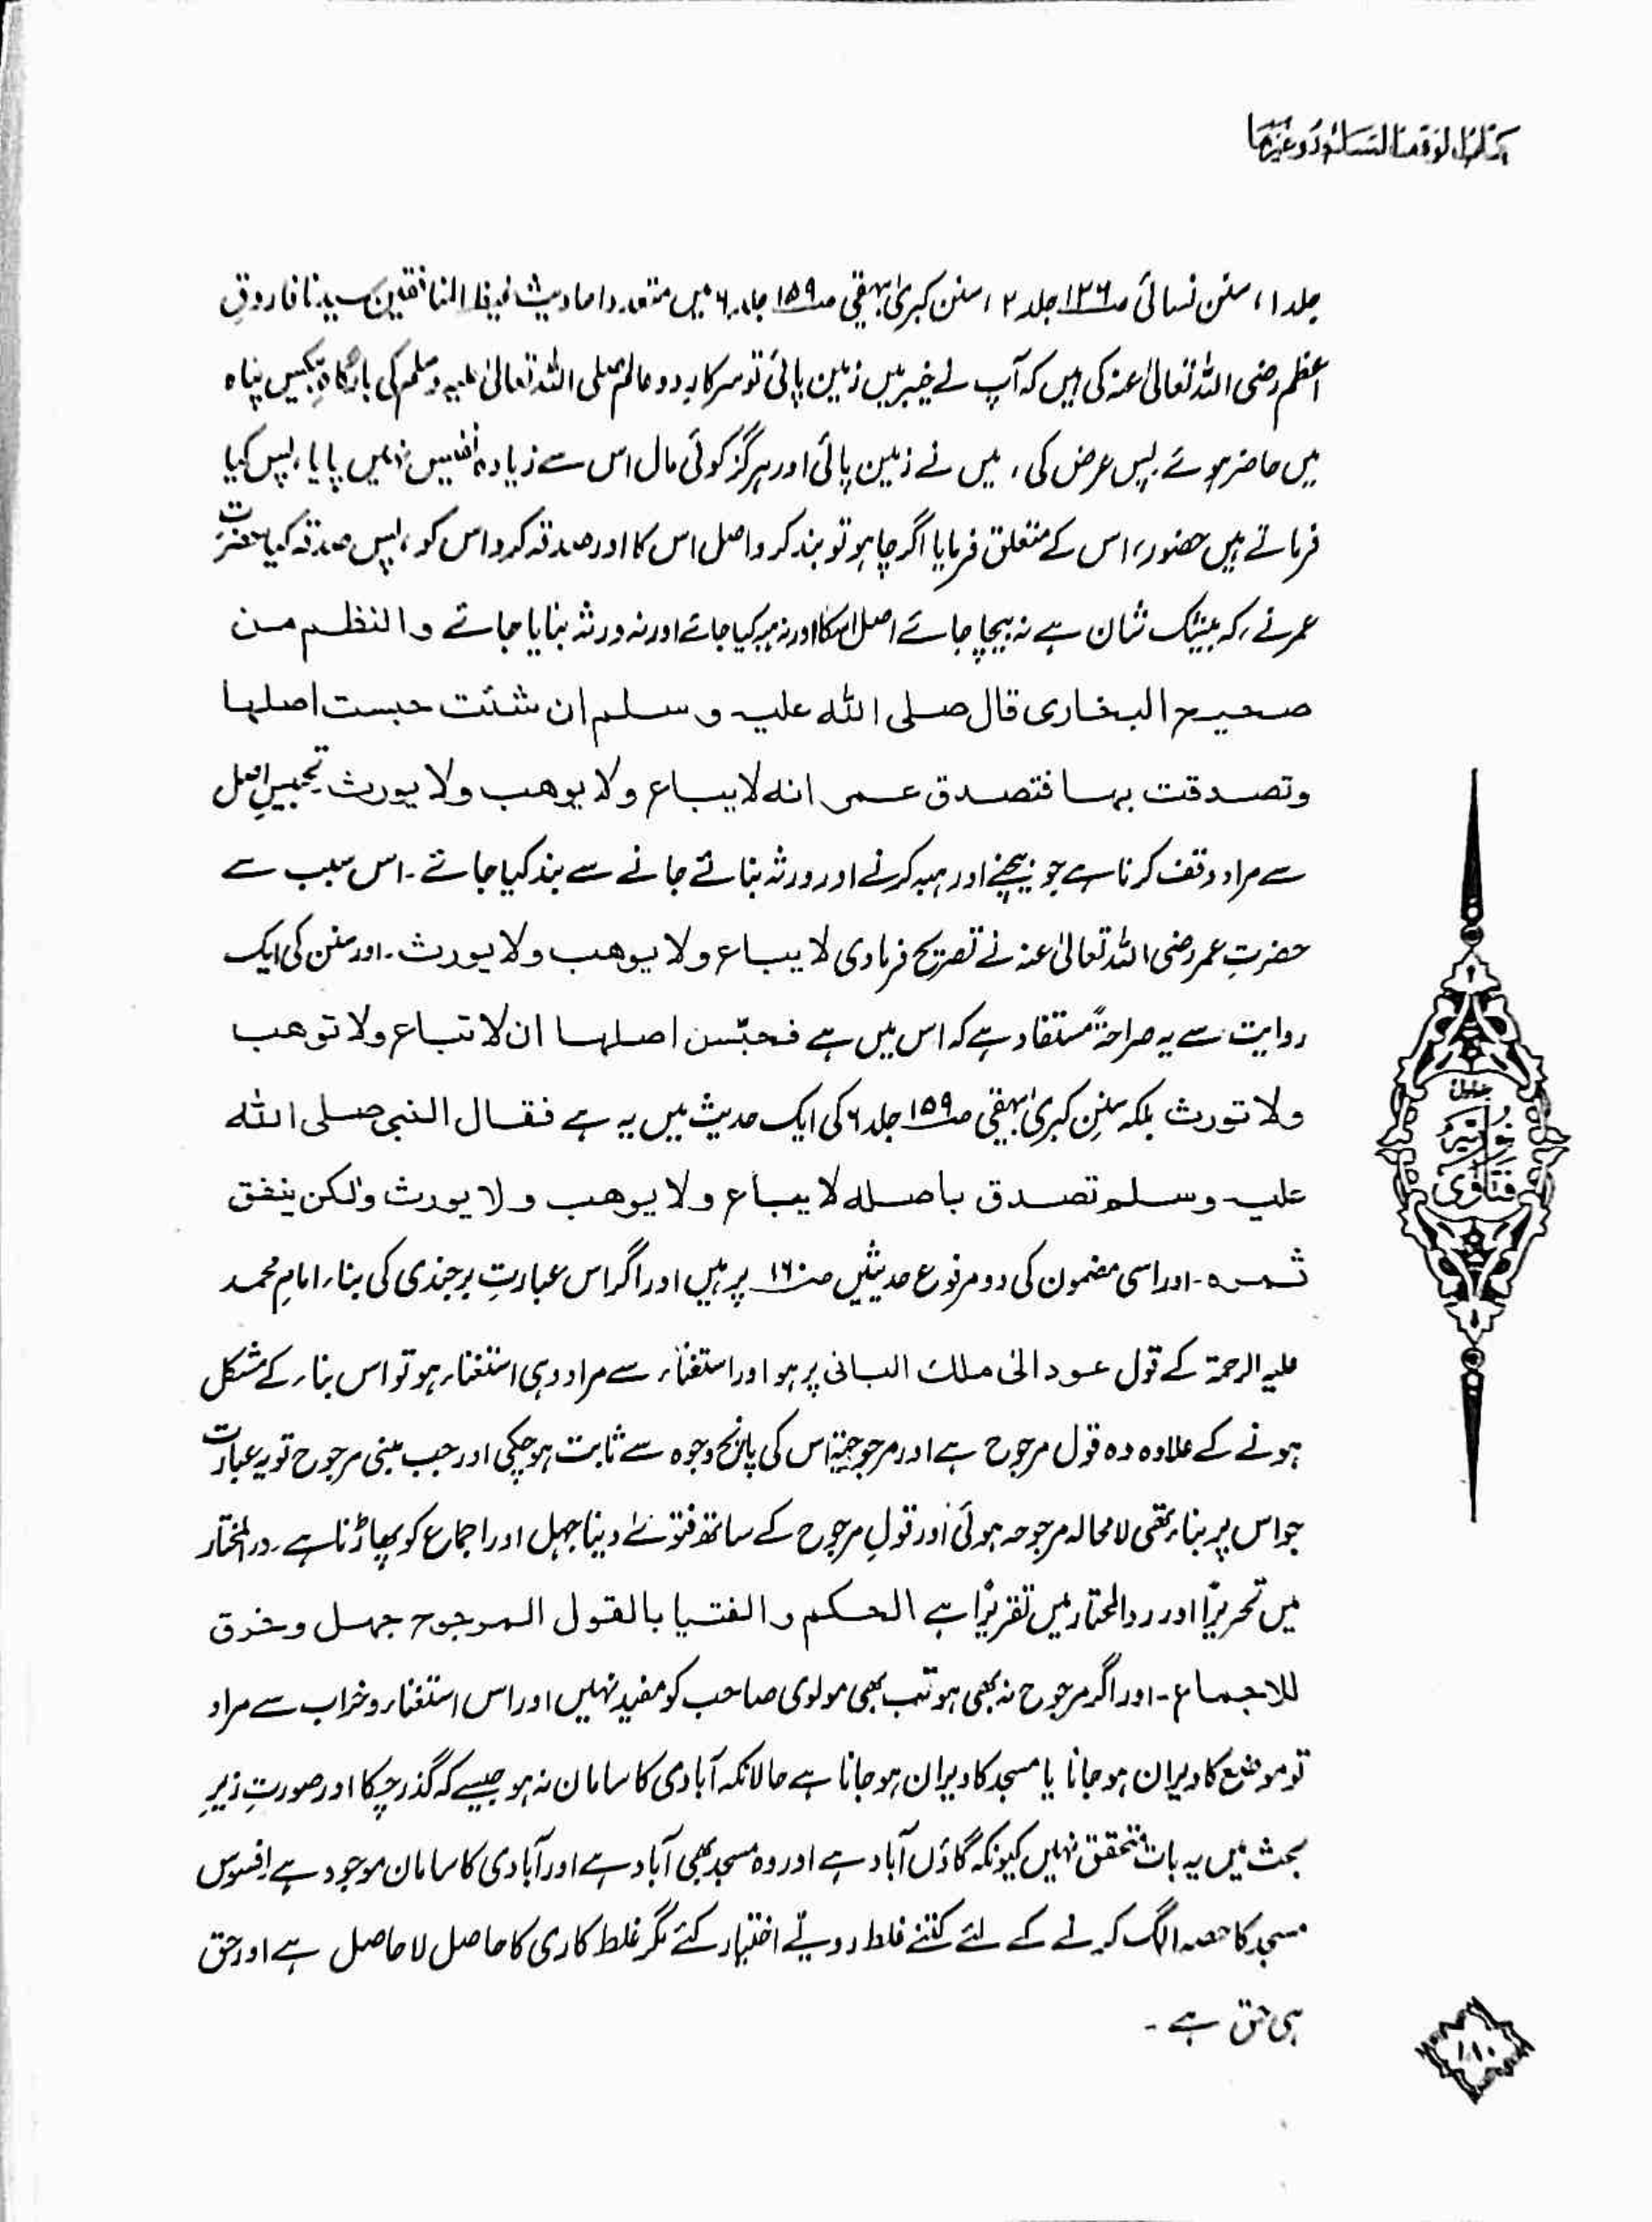 جلد ۱، سنن نسائی صـ۱۲۶ جلد ۲، سنن کبریٰ بیہقی صـ۱۵۹ جلد ۶ میں متعدد احادیث غیظ المنافقین سیدنا فاروقِ
اعظم رضی اللہ تعالیٰ عنہ کی ہیں کہ آپ نے خیبر میں زمین پائی تو سرکارِ دو عالم صلی اللہ تعالیٰ علیہ وسلم کی بارگاہِ بیکس پناہ
میں حاضر ہوئے پس عرض کی، میں نے زمین پائی اور ہرگز کوئی مال اس سے زیادہ نفیس نہیں پایا، پس کیا
فرماتے ہیں حضور، اس کے متعلق فرمایا اگر چاہو تو بند کرو اصل اس کا اور صدقہ کرو اس کو، پس صدقہ کیا حضرت
عمر نے، کہ بیشک شان ہے نہ بیچا جائے اصل اسکا اور نہ ہبہ کیا جائے اور نہ ورثہ بنایا جائے والنظم من
صحیح البخاری قال صلی اللہ علیہ وسلم ان شئت حبست اصلہا
وتصدقت بہا فتصدق عمر انہ لا یباع ولا یوھب ولا یورث تحبیسِ اصل
سے مراد وقف کرنا ہے جو بیچنے اور ہبہ کرنے اور ورثہ بنائے جانے سے بند کیا جائے۔ اس سبب سے
حضرتِ عمر رضی اللہ تعالیٰ عنہ نے تصریح فرمادی لا یباع ولا یوھب ولا یورث۔ اور سنن کی ایک
روایت سے یہ صراحۃً مستفاد ہے کہ اس میں ہے فحبّس اصلہا ان لا تباع ولا توھب
ولا تورث بلکہ سننِ کبریٰ بیہقی صـ۱۵۹ جلد ۶ کی ایک حدیث میں یہ ہے فقال النبی صلی اللہ
علیہ وسلم تصدق باصلہ لا یباع ولا یوھب ولا یورث ولکن ینفق
ثمرہ۔ اور اسی مضمون کی دو مرفوع حدیثیں صـ۱۶۰ پر ہیں اور اگر اس عبارتِ برجندی کی بناء امامِ محمد
علیہ الرحمۃ کے قول عود الی ملک البانی پر ہو اور استغناء سے مراد وہی استغناء ہو تو اس بناء کے مشکل
ہونے کے علاوہ وہ قول مرجوح ہے اور مرجوحیۃ اس کی پانچ وجوہ سے ثابت ہوچکی اور جب مبنی مرجوح تو یہ عبارت
جو اس پر بناء تھی لا محالہ مرجوحہ ہوئی اور قولِ مرجوح کے ساتھ فتوٰے دینا جہل اور اجماع کو پھاڑنا ہے۔ در المختار
میں تحریرًا اور رد المحتار میں تقریرًا ہے الحکم والفتیا بالقول المرجوح جہل وخرق
للاجماع۔ اور اگر مرجوح نہ بھی ہو تب بھی مولوی صاحب کو مفید نہیں اور اس استغناء وخراب سے مراد
تو موضع کا ویران ہو جانا یا مسجد کا ویران ہو جانا ہے حالانکہ آبادی کا سامان نہ ہو جیسے کہ گذر چکا اور صورتِ زیرِ
بحث میں یہ بات متحقق نہیں کیونکہ گاؤں آباد ہے اور وہ مسجد بھی آباد ہے اور آبادی کا سامان موجود ہے افسوس
مسجد کا حصہ الگ کرنے کے لئے کتنے غلط رویّے اختیار کئے مگر غلط کاری کا حاصل لا حاصل ہے اور حق
ہی حق ہے۔
نوریہ
فتاوٰی
۱۸۰